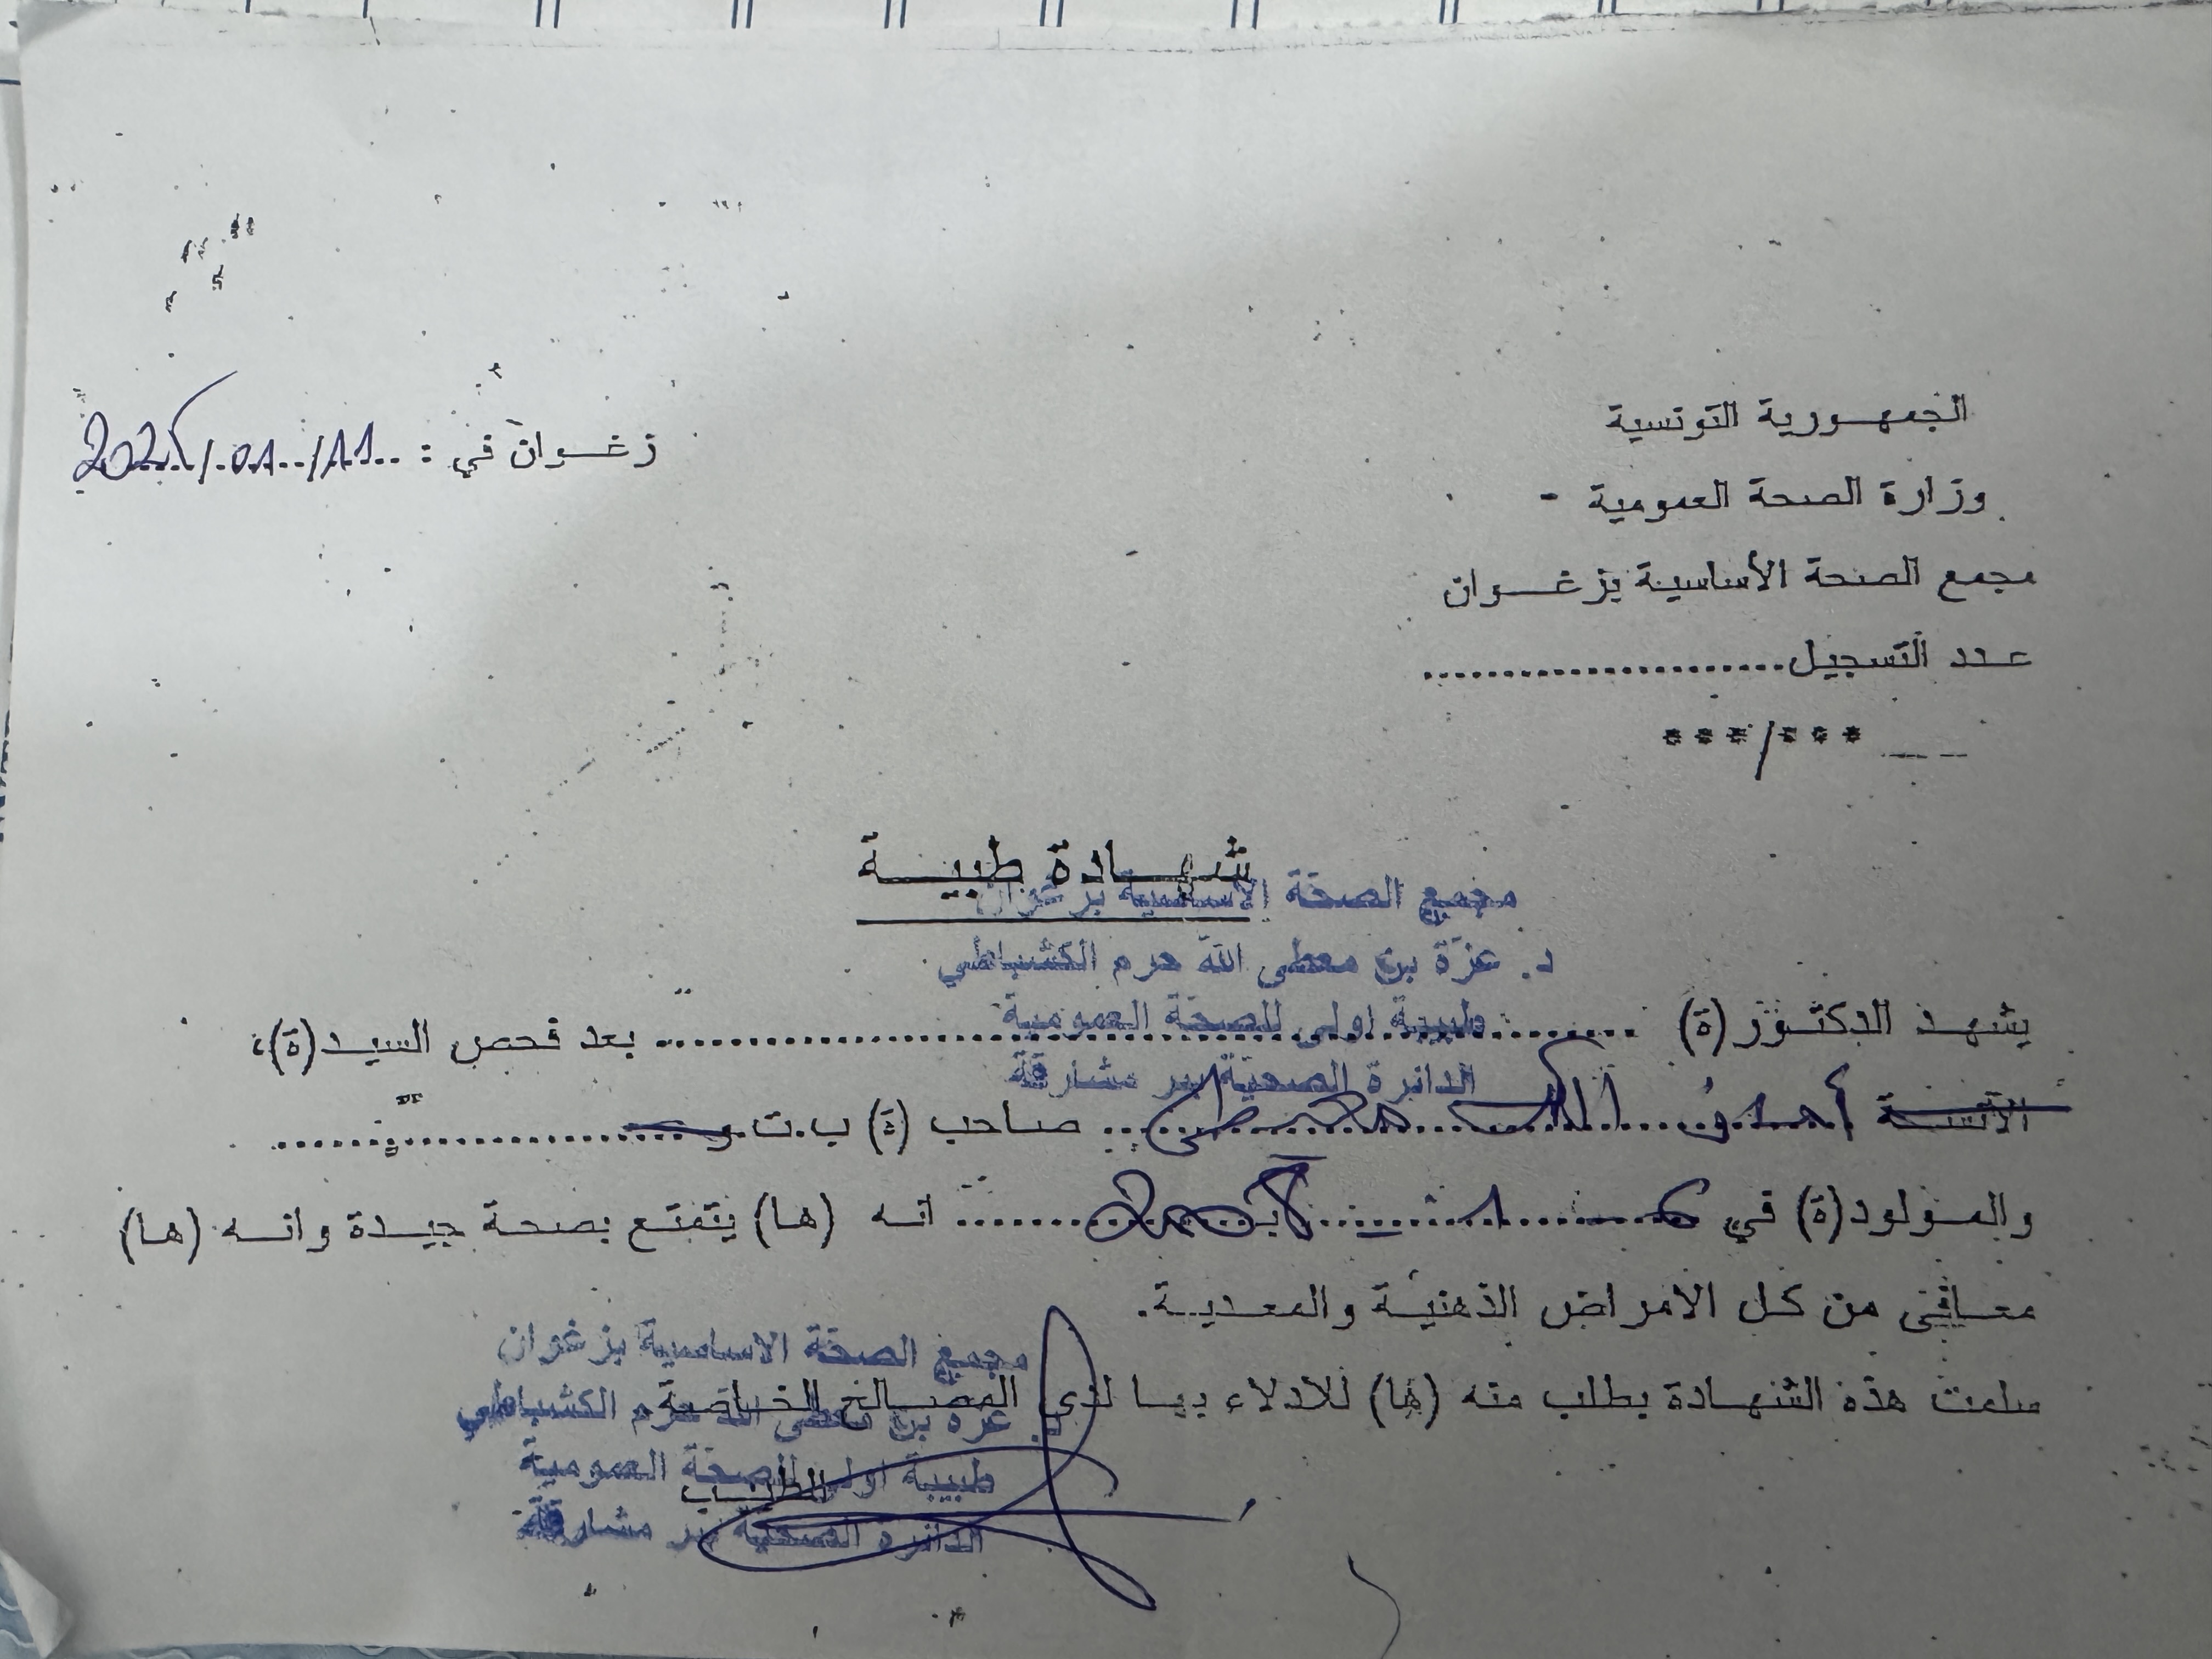 الجمهورية التونسية
وزارة الصحة العمومية -
مجمع الصحة الأساسية بزغوان
زغوان في : 11/01/
عدد التسجيل......................
***/***
شهادة طبية
مجمع الصحة الأساسية بزغوان
د. عزة بن معطى الله حرم الكشباطي
طبيبة اولى للصحة العمومية
الدائرة الصحية بير مشارقة
يشهد الدكتور (ة) .......................... بعد فحص السيد(ة)،
الآنسة صاحب (ة) ب.ت.و
والمولود(ة) في انه (ها) يتمتع بصحة جيدة وانه (ها)
معافى من كل الامراض الذهنية والمعدية.
سلمت هذه الشهادة بطلب منه (ها) للادلاء بها لدى المصالح الخاصة.
الطبيب
مجمع الصحة الاساسية بزغوان
د. عزة بن معطى الله حرم الكشباطي
طبيبة اولى للصحة العمومية
الدائرة الصحية بير مشارقة